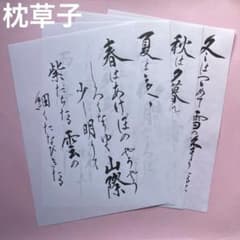 枕草子
冬はつとめて雪の
秋は夕暮
夏は
春はあけぼのやうやう
しろくなりゆく山際
少し明りて
紫だちたる雲の
細くたなびきたる